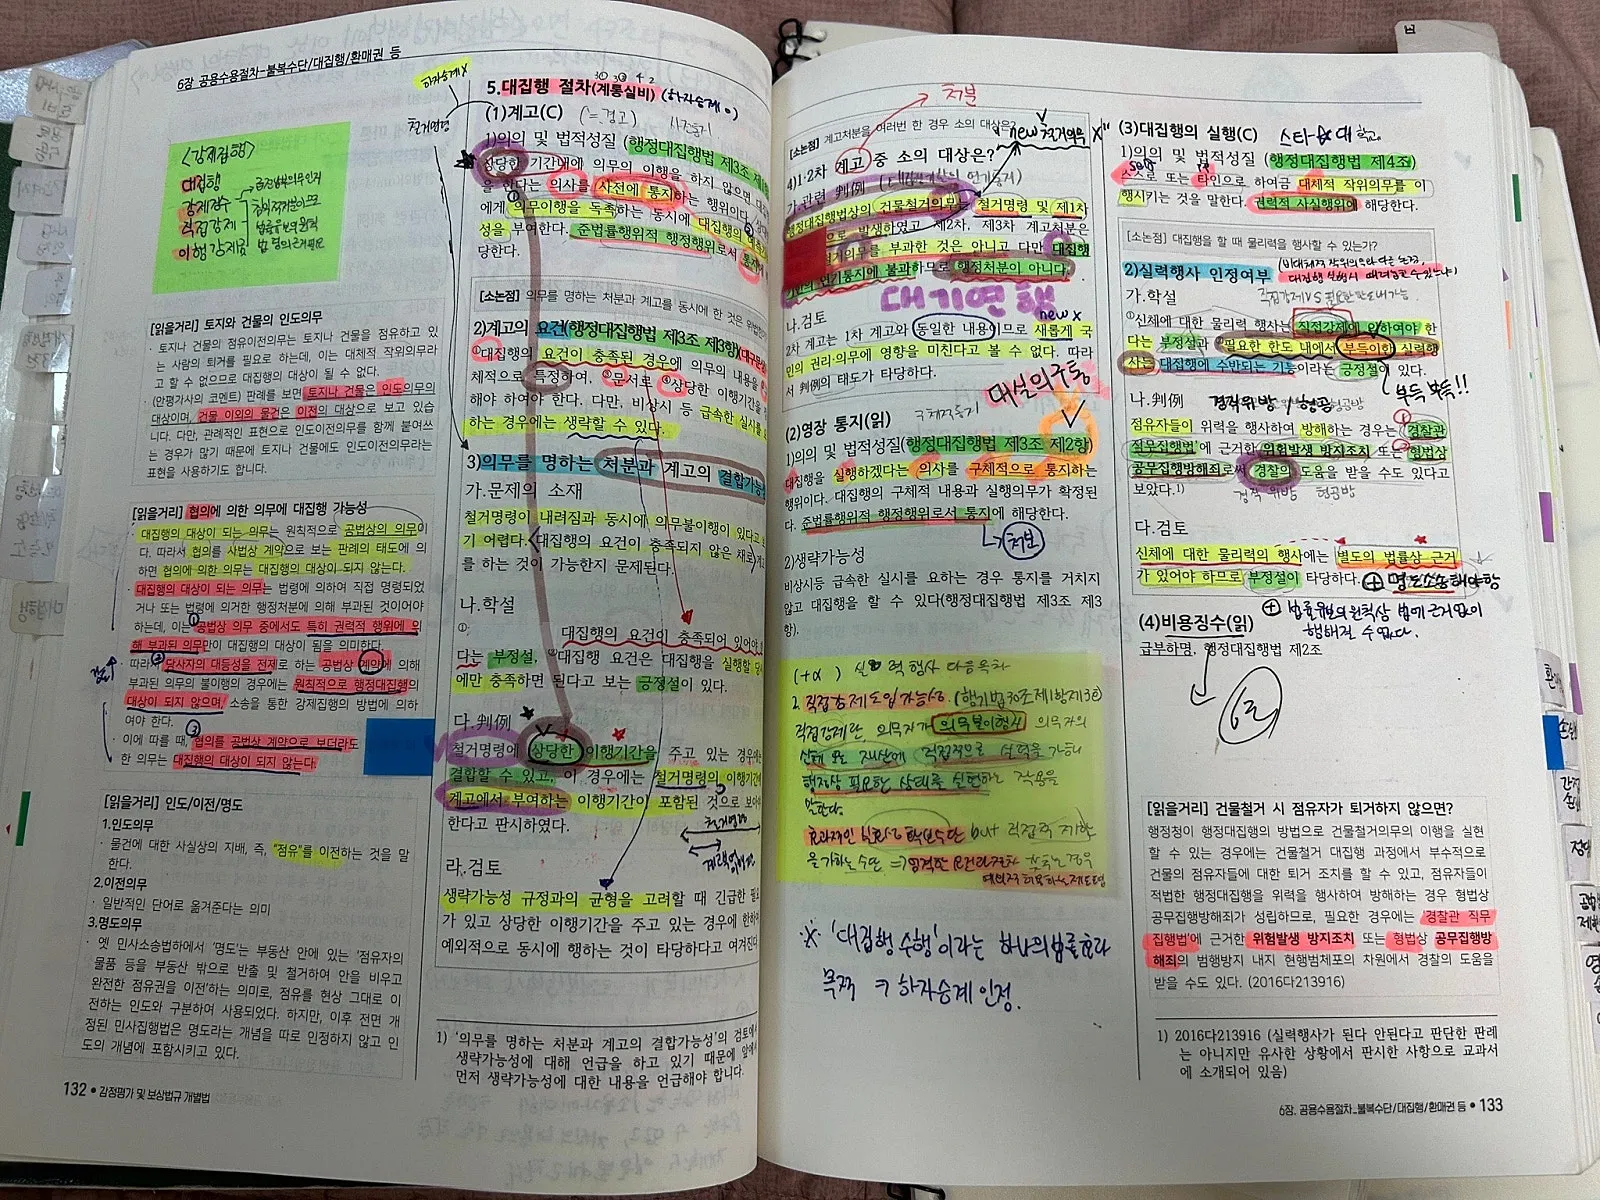 6장 공용수용절차-불복수단/대집행/환매권 등
<강제집행>
대집행
강제징수
직접강제
이행강제금
[읽을거리] 토지와 건물의 인도의무
· 토지나 건물의 점유이전의무는 토지나 건물을 점유하고 있
는 사람의 퇴거를 필요로 하는데, 이는 대체적 작위의무라
고 할 수 없으므로 대집행의 대상이 될 수 없다.
· (안평가사의 코멘트) 판례를 보면 토지나 건물은 인도의무의
대상이며, 건물 이외의 물건은 이전의 대상으로 보고 있습
니다. 다만, 관례적인 표현으로 인도이전의무를 함께 붙여쓰
는 경우가 많기 때문에 토지나 건물에도 인도이전의무라는
표현을 사용하기도 합니다.
[읽을거리] 협의에 의한 의무에 대집행 가능성
· 대집행의 대상이 되는 의무는 원칙적으로 공법상의 의무이
다. 따라서 협의를 사법상 계약으로 보는 판례의 태도에 의
하면 협의에 의한 의무는 대집행의 대상이 되지 않는다.
· 대집행의 대상이 되는 의무는 법령에 의하여 직접 명령되었
거나 또는 법령에 의거한 행정처분에 의해 부과된 것이어야
하는데, 이는 공법상 의무 중에서도 특히 권력적 행위에 의
해 부과된 의무만이 대집행의 대상이 됨을 의미한다.
· 따라서 당사자의 대등성을 전제로 하는 공법상 계약에 의해
부과된 의무의 불이행의 경우에는 원칙적으로 행정대집행의
대상이 되지 않으며, 소송을 통한 강제집행의 방법에 의하
여야 한다.
· 이에 따를 때, 협의를 공법상 계약으로 보더라도
한 의무는 대집행의 대상이 되지 않는다.
[읽을거리] 인도/이전/명도
1.인도의무
· 물건에 대한 사실상의 지배, 즉, "점유"를 이전하는 것을 말
한다.
2.이전의무
· 일반적인 단어로 옮겨준다는 의미
3.명도의무
· 옛 민사소송법하에서 '명도'는 부동산 안에 있는 '점유자의
물품 등을 부동산 밖으로 반출 및 철거하여 안을 비우고
완전한 점유권을 이전'하는 의미로, 점유를 현상 그대로 이
전하는 인도와 구분하여 사용되었다. 하지만, 이후 전면 개
정된 민사집행법은 명도라는 개념을 따로 인정하지 않고 인
도의 개념에 포함시키고 있다.
132 • 감정평가 및 보상법규 개별법
하자승계X
철거명령
5.대집행 절차(계통실비) (하자승계 o)
(1)계고(C) (= 경고)
1)의의 및 법적성질 (행정대집행법 제3조 제
상당한 기간내에 의무의 이행을 하지 않으면 대
을 한다는 의사를 사전에 통지하는 행위이다.
에게 의무이행을 독촉하는 동시에 대집행의
성을 부여한다. 준법률행위적 행정행위로서 통지에
당한다.
[소논점] 의무를 명하는 처분과 계고를 동시에 한 것은 위법한
2)계고의 요건(행정대집행법 제3조 제3항)
①대집행의 요건이 충족된 경우에 의무의 내용을
체적으로 특정하여, ③문서로 ④상당한 이행기간을
해야 하여야 한다. 다만, 비상시 등 급속한 실시를 요
하는 경우에는 생략할 수 있다.
3)의무를 명하는 처분과 계고의 결합가능성
가.문제의 소재
철거명령이 내려짐과 동시에 의무불이행이 있다고 보
기 어렵다. 대집행의 요건이 충족되지 않은 채로 계고
를 하는 것이 가능한지 문제된다.
나.학설
대집행의 요건이 충족되어 있어야
다는 부정설, ②대집행 요건은 대집행을 실행할 당
에만 충족하면 된다고 보는 긍정설이 있다.
다.判例
철거명령에 상당한 이행기간을 주고 있는 경우에는
결합할 수 있고, 이 경우에는 철거명령의 이행기간에
계고에서 부여하는 이행기간이 포함된 것으로 보아야
한다고 판시하였다.
라.검토
생략가능성 규정과의 균형을 고려할 때 긴급한 필요
가 있고 상당한 이행기간을 주고 있는 경우에 한하여
예외적으로 동시에 행하는 것이 타당하다고 여겨진다.
1) '의무를 명하는 처분과 계고의 결합가능성'의 검토에서
생략가능성에 대해 언급을 하고 있기 때문에 앞에서
먼저 생략가능성에 대한 내용을 언급해야 합니다.
처분
[소논점] 계고처분을 여러번 한 경우 소의 대상은?
new 철거의무 X"
4)1·2차 계고 중 소의 대상은?
가.관련 判例
행정대집행법상의 건물철거의무는 철거명령 및 제1차
으로 발생하였고 제2차, 제3차 계고처분은
철거의무를 부과한 것은 아니고 다만 대집행
기한의 연기통지에 불과하므로 행정처분이 아니다.
대기연행
나.검토
new x
2차 계고는 1차 계고와 동일한 내용이므로 새롭게 국
민의 권리·의무에 영향을 미친다고 볼 수 없다. 따라
서 判例의 태도가 타당하다.
대실의구통
(2)영장 통지(읽)
1)의의 및 법적성질(행정대집행법 제3조 제2항)
대집행을 실행하겠다는 의사를 구체적으로 통지하는
행위이다. 대집행의 구체적 내용과 실행의무가 확정된
다. 준법률행위적 행정행위로서 통지에 해당한다.
처분
2)생략가능성
비상시등 급속한 실시를 요하는 경우 통지를 거치지
않고 대집행을 할 수 있다(행정대집행법 제3조 제3
항).
(+α) 실력행사 다음목차
2. 직접강제 도입가능성. (행기법 30조 제1항 제3호)
직접강제란, 의무자가 의무불이행시 의무자의
신체 또는 재산에 직접적으로 실력을 가해
행정상 필요한 상태를 실현하는 작용을
말한다.
효과적인 실효성 확보수단 but 직접적 제한
을 가하는 수단
※ '대집행 수행'이라는 하나의 법률효과
목적 ⇒ 하자승계 인정.
(3)대집행의 실행(C)
1)의의 및 법적성질 (행정대집행법 제4조)
스스로 또는 타인으로 하여금 대체적 작위의무를 이
행시키는 것을 말한다. 권력적 사실행위에 해당한다.
[소논점] 대집행을 할 때 물리력을 행사할 수 있는가?
2)실력행사 인정여부
가.학설
①신체에 대한 물리력 행사는 직접강제에 의하여야 한
다는 부정설과 ②필요한 한도 내에서 부득이한 실력행
사는 대집행에 수반되는 기능이라는 긍정설이 있다.
부득 부득!!
나.判例 경직위방 / 형공
점유자들이 위력을 행사하여 방해하는 경우는 '경찰관
직무집행법'에 근거한 위험발생 방지조치 또는 형법상
공무집행방해죄로써 경찰의 도움을 받을 수도 있다고
보았다.1)
경직 위방 형공방
다.검토
신체에 대한 물리력의 행사에는 별도의 법률상 근거
가 있어야 하므로 부정설이 타당하다. ⊕ 명도소송해야함
⊕ 법률유보의 원칙상 법에 근거없이
행해질 수 없다.
(4)비용징수(읽)
급부하명, 행정대집행법 제2조
[읽을거리] 건물철거 시 점유자가 퇴거하지 않으면?
행정청이 행정대집행의 방법으로 건물철거의무의 이행을 실현
할 수 있는 경우에는 건물철거 대집행 과정에서 부수적으로
건물의 점유자들에 대한 퇴거 조치를 할 수 있고, 점유자들이
적법한 행정대집행을 위력을 행사하여 방해하는 경우 형법상
공무집행방해죄가 성립하므로, 필요한 경우에는 '경찰관 직무
집행법'에 근거한 위험발생 방지조치 또는 형법상 공무집행방
해죄의 범행방지 내지 현행범체포의 차원에서 경찰의 도움을
받을 수도 있다. (2016다213916)
1) 2016다213916 (실력행사가 된다 안된다고 판단한 판례
는 아니지만 유사한 상황에서 판시한 사항으로 교과서
에 소개되어 있음)
6장. 공용수용절차_불복수단/대집행/환매권 등 • 133